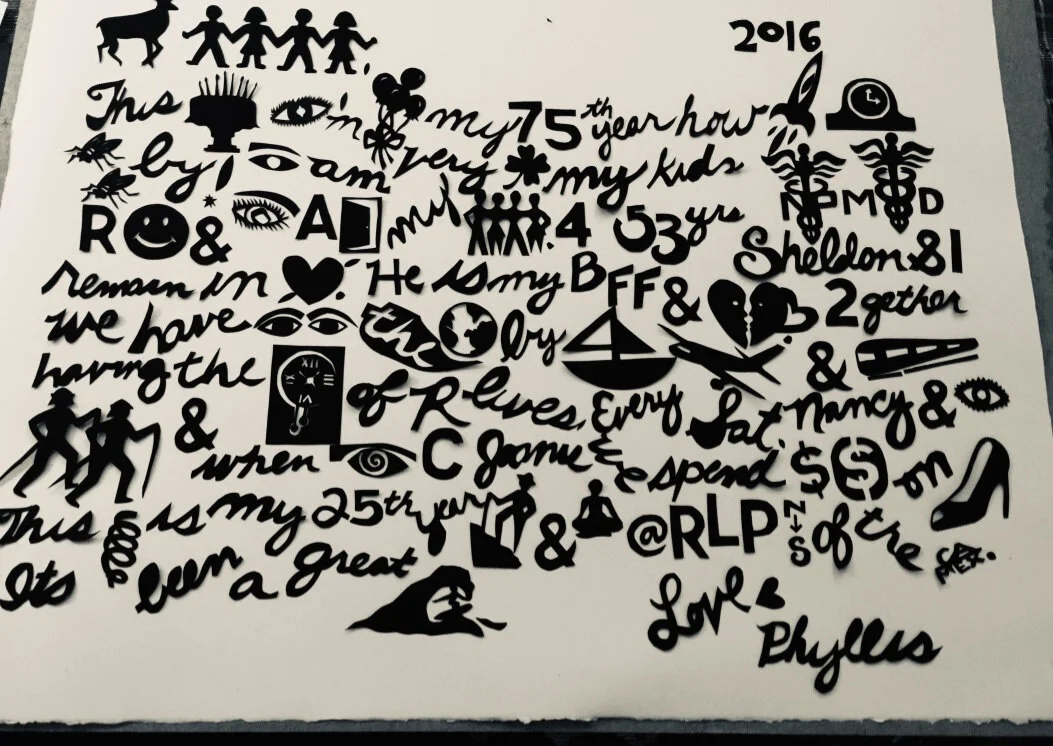 2016
This in my 75th year how
by I am very my kids
NP MD
R & A my 4 53 yrs
Sheldon & I
remain in He is my BFF & 2gether
we have by
having the of R lives. Every Sat. Nancy &
& when C Joanie & spend $ $ on
This is my 25th year & @RLP of
Its been a great
Love
Phyllis